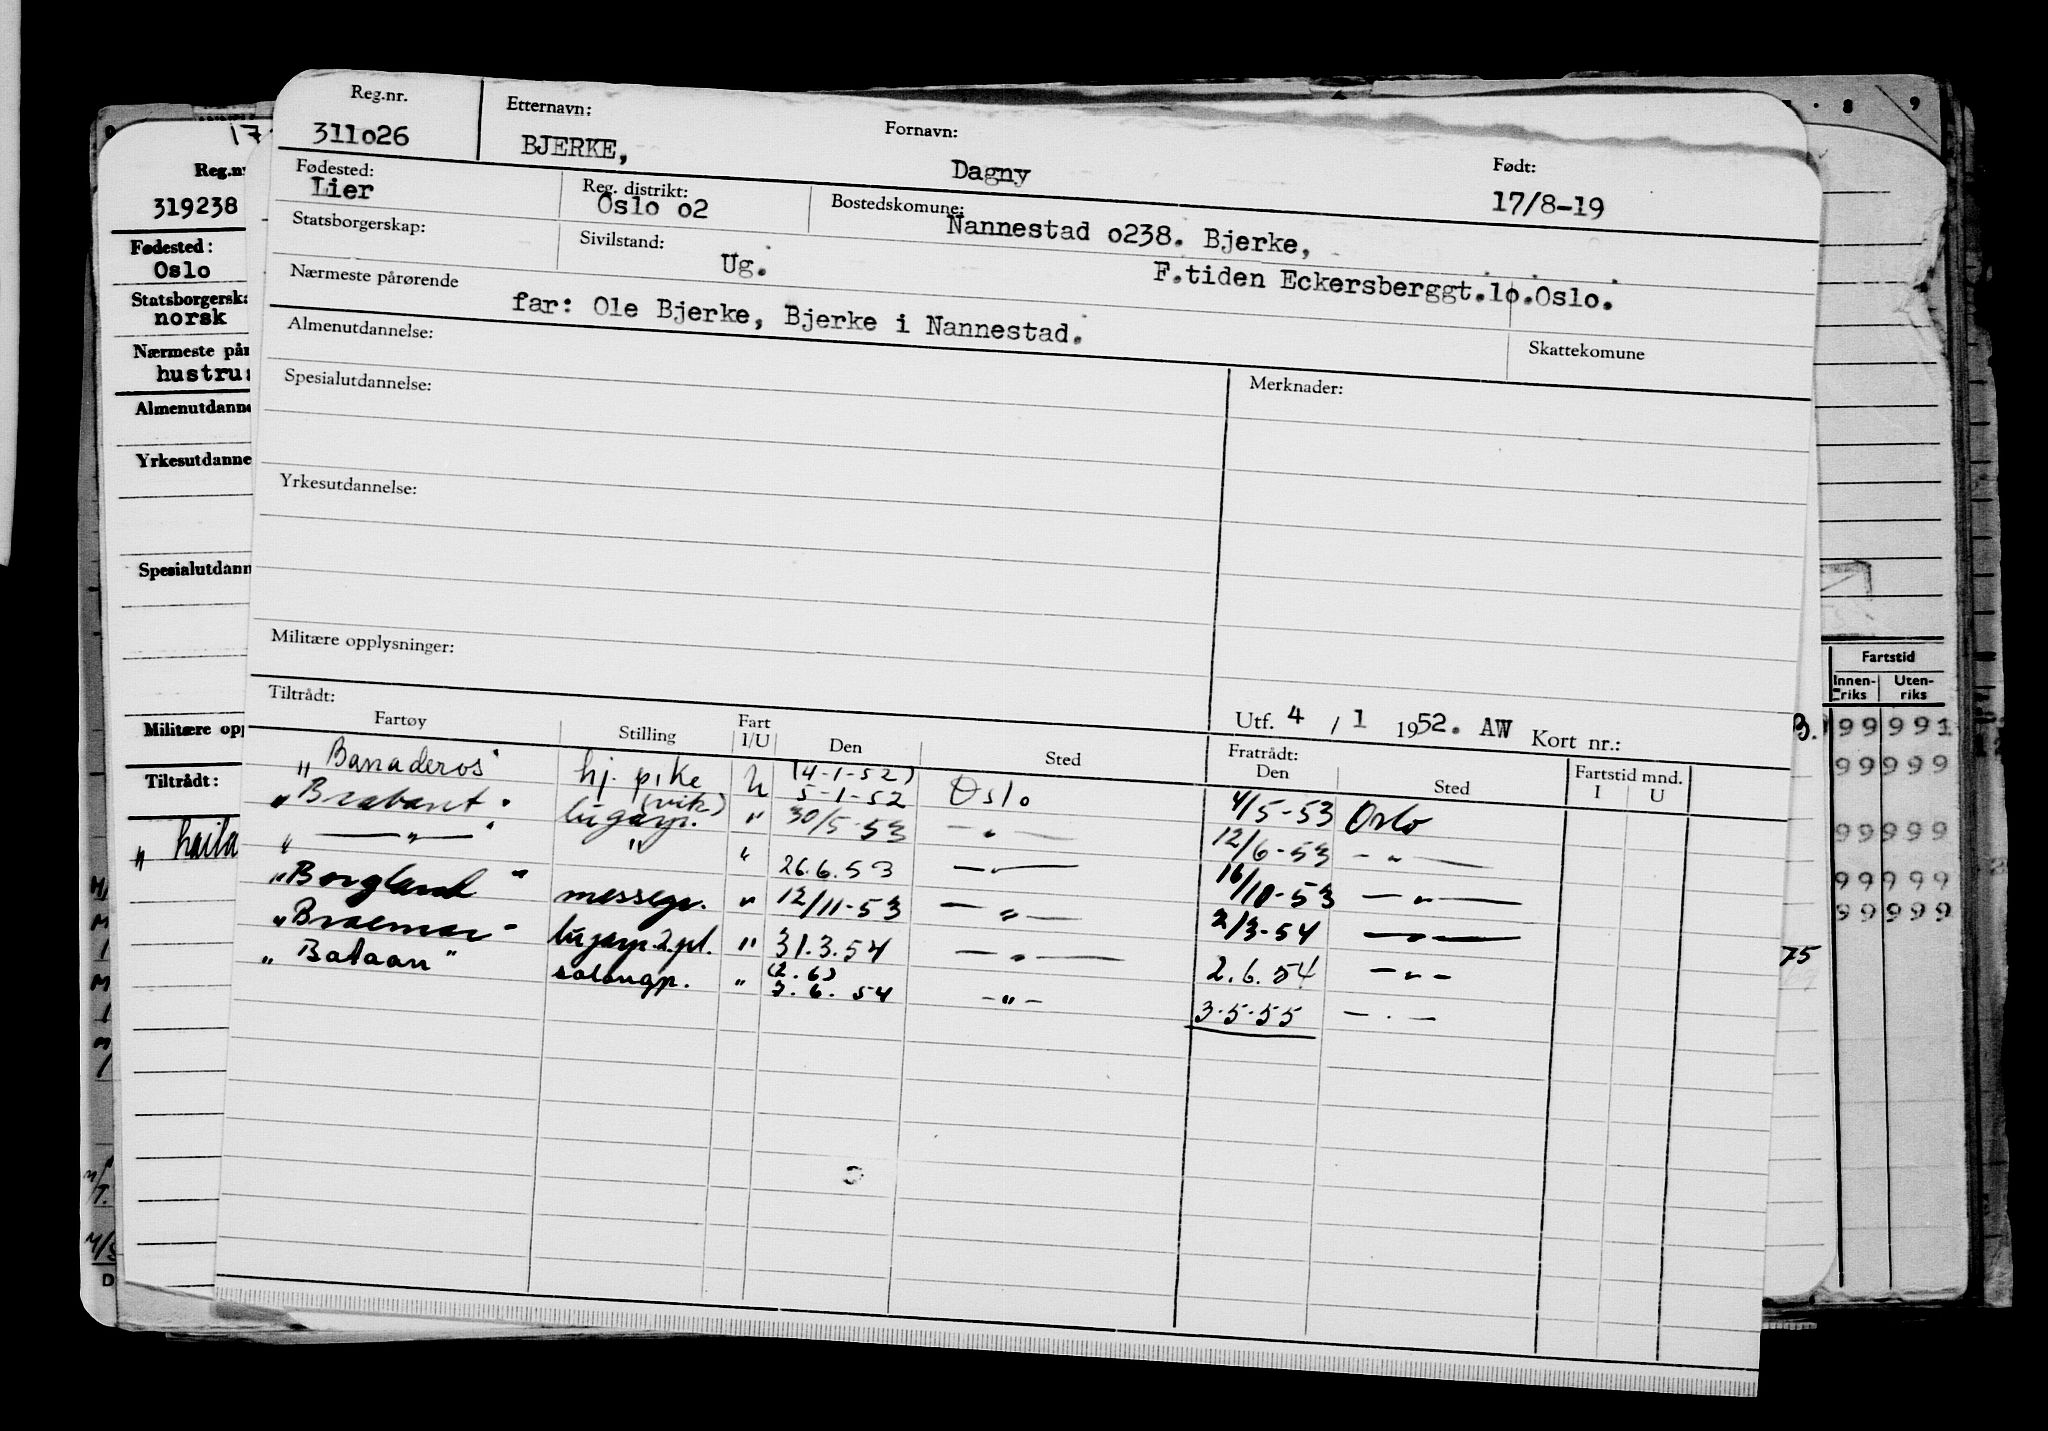 Reg.nr. Etternavn: Fornavn: Født:
311o26 BJERKE, Dagny 17/8-19
Fødested: Reg. distrikt: Bostedskomune:
Lier Oslo o2 Nannestad o238. Bjerke,
Statsborgerskap: Sivilstand: Ug. F.tiden Eckersberggt.lo.Oslo.
Nærmeste pårørende far: Ole Bjerke, Bjerke i Nannestad.
Almenutdannelse: Skattekomune
Spesialutdannelse: Merknader:
Yrkesutdannelse:
Militære opplysninger:
Tiltrådt: Utf. 4 / 1 1952. AW Kort nr.:
Fartøy Stilling Fart I/U Den Sted Fratrådt: Den Sted Fartstid mnd. I U
„Banaderos" hj. pike U (4-1-52) 5-1-52 Oslo 4/5-53 Oslo
„Brabant" lugarp. (vik) " 30/5-53 — " — 12/6-53 — " —
„ — " — " " " 26.6.53 — " — 16/10-53 — " —
„Borgland" messegp. " 12/11-53 — " — 2/3-54 — " —
„Braemar" lugarp. 2.pl. " 31.3.54 — " — 2.6.54 — " —
„Bataan" salongp. " (2.6) 3.6.54 — " — 3-5-55 — " —
17
Reg.n
319238
Fødested:
Oslo
Statsborgerska
norsk
Nærmeste pår
hustru
Almenutdanne
Yrkesutdanne
Spesialutdann
Militære opp
Tiltrådt:
8 9
Fartstid
Innenriks Utenriks
B. 99 991
99 999
99 999
99 999
99 999
75